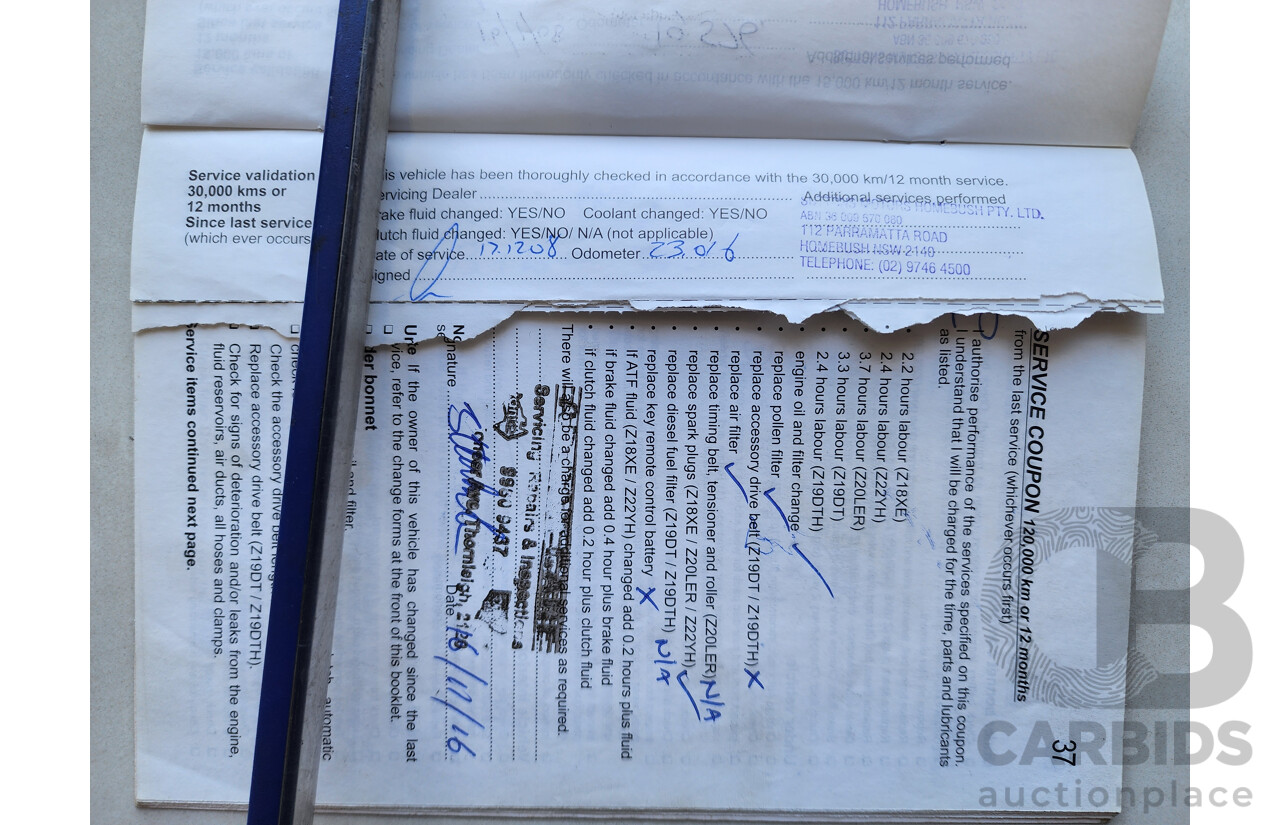 Additional services performed
vehicle has been thoroughly checked in accordance with the 15,000 km/12 month service.
Service validation
30,000 kms or
12 months
Since last service
(which ever occurs
is vehicle has been thoroughly checked in accordance with the 30,000 km/12 month service.
ervicing Dealer
Additional services performed
rake fluid changed: YES/NO Coolant changed: YES/NO
lutch fluid changed: YES/NO/ N/A (not applicable)
ate of service 17.12.08 Odometer 23.016
igned
HOMEBUSH PTY. LTD.
ABN 36 009 570 080
112 PARRAMATTA ROAD
HOMEBUSH NSW 2140
TELEPHONE: (02) 9746 4500
37
SERVICE COUPON 120,000 km or 12 months
from the last service (whichever occurs first)
I authorise performance of the services specified on this coupon.
I understand that I will be charged for the time, parts and lubricants
as listed.
• 2.2 hours labour (Z18XE)
• 2.4 hours labour (Z22YH)
• 3.7 hours labour (Z20LER)
• 3.3 hours labour (Z19DT)
• 2.4 hours labour (Z19DTH)
• engine oil and filter change ✓
• replace pollen filter ✓
• replace accessory drive belt (Z19DT / Z19DTH) X
• replace air filter ✓
• replace timing belt, tensioner and roller (Z20LER) N/A
• replace spark plugs (Z18XE / Z20LER / Z22YH) ✓
• replace diesel fuel filter (Z19DT / Z19DTH) N/A
• replace key remote control battery X
• If ATF fluid (Z18XE / Z22YH) changed add 0.2 hours plus fluid
• if brake fluid changed add 0.4 hour plus brake fluid
• if clutch fluid changed add 0.2 hour plus clutch fluid
There will also be a charge for additional services as required.
Servicing Repairs & Inspections
9980 9497
Thornleigh, 2120
gnature Date 16/11/16
If the owner of this vehicle has changed since the last
vice, refer to the change forms at the front of this booklet.
der bonnet
il and filter.
automatic
Check the accessory drive belt
Replace accessory drive belt (Z19DT / Z19DTH).
Check for signs of deterioration and/or leaks from the engine,
fluid reservoirs, air ducts, all hoses and clamps.
Service items continued next page.
CARBIDS
auctionplace